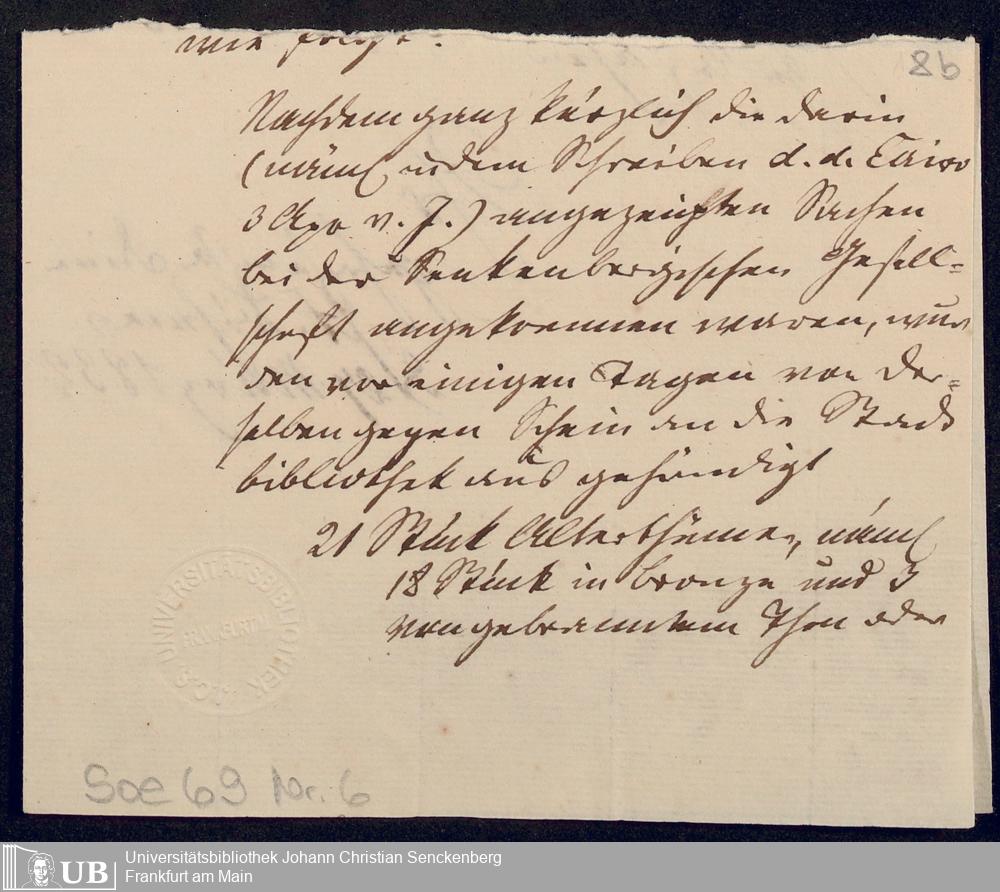 wie folgt.
8b
Nachdem ganz kürzlich die darin
(näml in dem Schreiben d. d. Cairo
3 Apr v. J.) angezeigten Sachen
bei der Senkenbergischen Gesell=
schaft angekommen waren, wur
den vor einigen Tagen von der=
selben gegen Schein an die Stadt
bibliothek aus gehändigt
21 Stück Alterthümer, näml
18 Stück in bronze und 3
von gebranntem Thon oder
UNIVERSITÄTSBIBLIOTHEK
FRANKFURT/M
Soe 69 Nr. 6
UB
Universitätsbibliothek Johann Christian Senckenberg
Frankfurt am Main